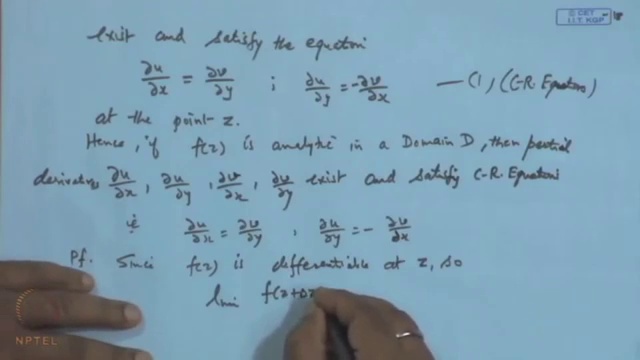 © CET
I.I.T. KGP
exist and satisfy the equation
∂u/∂x = ∂v/∂y ; ∂u/∂y = -∂v/∂x —(1) (C-R. Equations)
at the point z.
Hence, if f(z) is analytic in a Domain D, then partial
derivatives ∂u/∂x, ∂u/∂y, ∂v/∂x, ∂v/∂y exist and satisfy C-R. Equations
ie ∂u/∂x = ∂v/∂y, ∂u/∂y = - ∂v/∂x
Pf. Since f(z) is differentiable at z, so
lim f(z+Δz
NPTEL